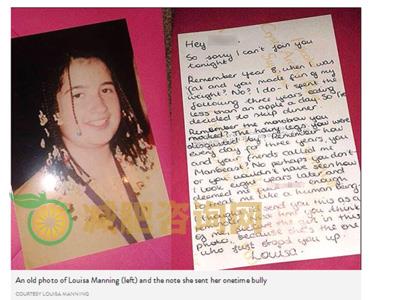 Hey
So sorry I can't join you
tonight
Remember Year 8, when I was
fat and you made fun of my
weight? No? I do - I spent the
following three years eating
less than an apple a day. So I've
decided to skip dinner
Remember the monobrow you
mocked? The hairy legs you were
disgusted by? Remember how
every day for three years, you
and your friends called me
Manbeast? No perhaps you don't -
or you wouldn't have seen how
I look eight years later and
deemed me enough
to treat me like a human being
I thought I'd send you this as a
time you think
of me, in this
photo, because she's the one
who just stood you up.
Louisa.
减肥咨询网
An old photo of Louisa Manning (left) and the note she sent her onetime bully
COURTESY LOUISA MANNING